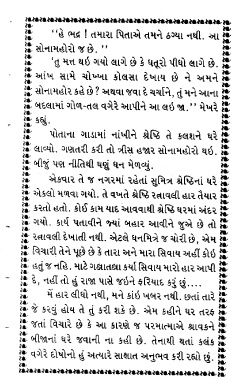 “હે ભદ્ર ! તમારા પિતાએ તમને ઠગ્યા નથી. આ
સોનામહોરો જ છે. ’’
‘તુ મત્ત થઇ ગયો લાગે છે કે ધતૂરો પીધો લાગે છે.
આંખ સામે ચોખ્ખા કોલસા દેખાય છે ને અમને
સોનામહોર કહે છે? અથવા જવા દે ચર્ચાને, તું મને આના
બદલામાં ગોળ-તલ વગેરે આપીને આ લઇ જા.’’ મેખરે
કહ્યું.
પોતાના ગાડામાં નાંખીને શ્રેષ્ઠિ તે કલશને ઘરે
લાવ્યો. ગણતરી કરી તો ત્રીસ હજાર સોનામહોરો થઇ.
બીજું પણ નીતિથી ઘણું ધન મેળવ્યું.
એકવાર તે જ નગરમાં રહેતાં સુમિત્ર શ્રેષ્ઠિનાં ઘરે
એકલો મળવા ગયો. તે વખતે શ્રેષ્ઠિ રતાવલી હાર તૈયાર
કરતો હતો. કોઇ કામ યાદ આવવાથી શ્રેષ્ઠિ ઘરમાં અંદર
ગયો. કાર્ય પતાવીને જ્યાં બહાર આવીને જુએ છે તો
રતાવલી દેખાતી નથી. એટલે ધનમિત્રે જ ચોરી છે, એમ
વિચારી તેને પૂછે છે કે તારા અને મારા સિવાય અહીં કોઇ
હતું જ નહિ. માટે ગલ્લાતલ્લા કર્યા સિવાય મારો હાર આપી
દે, નહીં તો હું રાજા પાસે જઇને ફરિયાદ કરું છું....
મેં હાર લીધો નથી, મને કાંઇ ખબર નથી. છતાં તારે
જે કરવું હોય તે તું કરી શકે છે. એમ કહીને ઘર તરફ
જતાં વિચારે છે કે આ કારણે જ પરમાત્માએ શ્રાવકને
બીજાનાં ઘરે જવાની ના કહી છે. તેનાથી થતાં કલંક
વગેરે દોષોનો હું અત્યારે સાક્ષાત અનુભવ કરી રહ્યો છું.